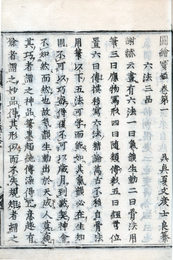 圖繪寶鑑卷第一
吳興夏文彥士良纂
六法三品
謝赫云畫有六法一曰氣韻生動二曰骨法用
筆三曰應物寫形四曰隨類傅彩五曰經營位
置六曰傳模移寫六法精論萬古不移自骨法用筆
以下五法可學而能如其氣韻必在生知
固不可以巧密得復不可以歲月到默契神會
不知然而然也故氣韻生動出於天成人莫窺
其巧者謂之神品筆墨超絕傳染得宜意趣有
餘者謂之妙品得其形似而不失規矩者謂之